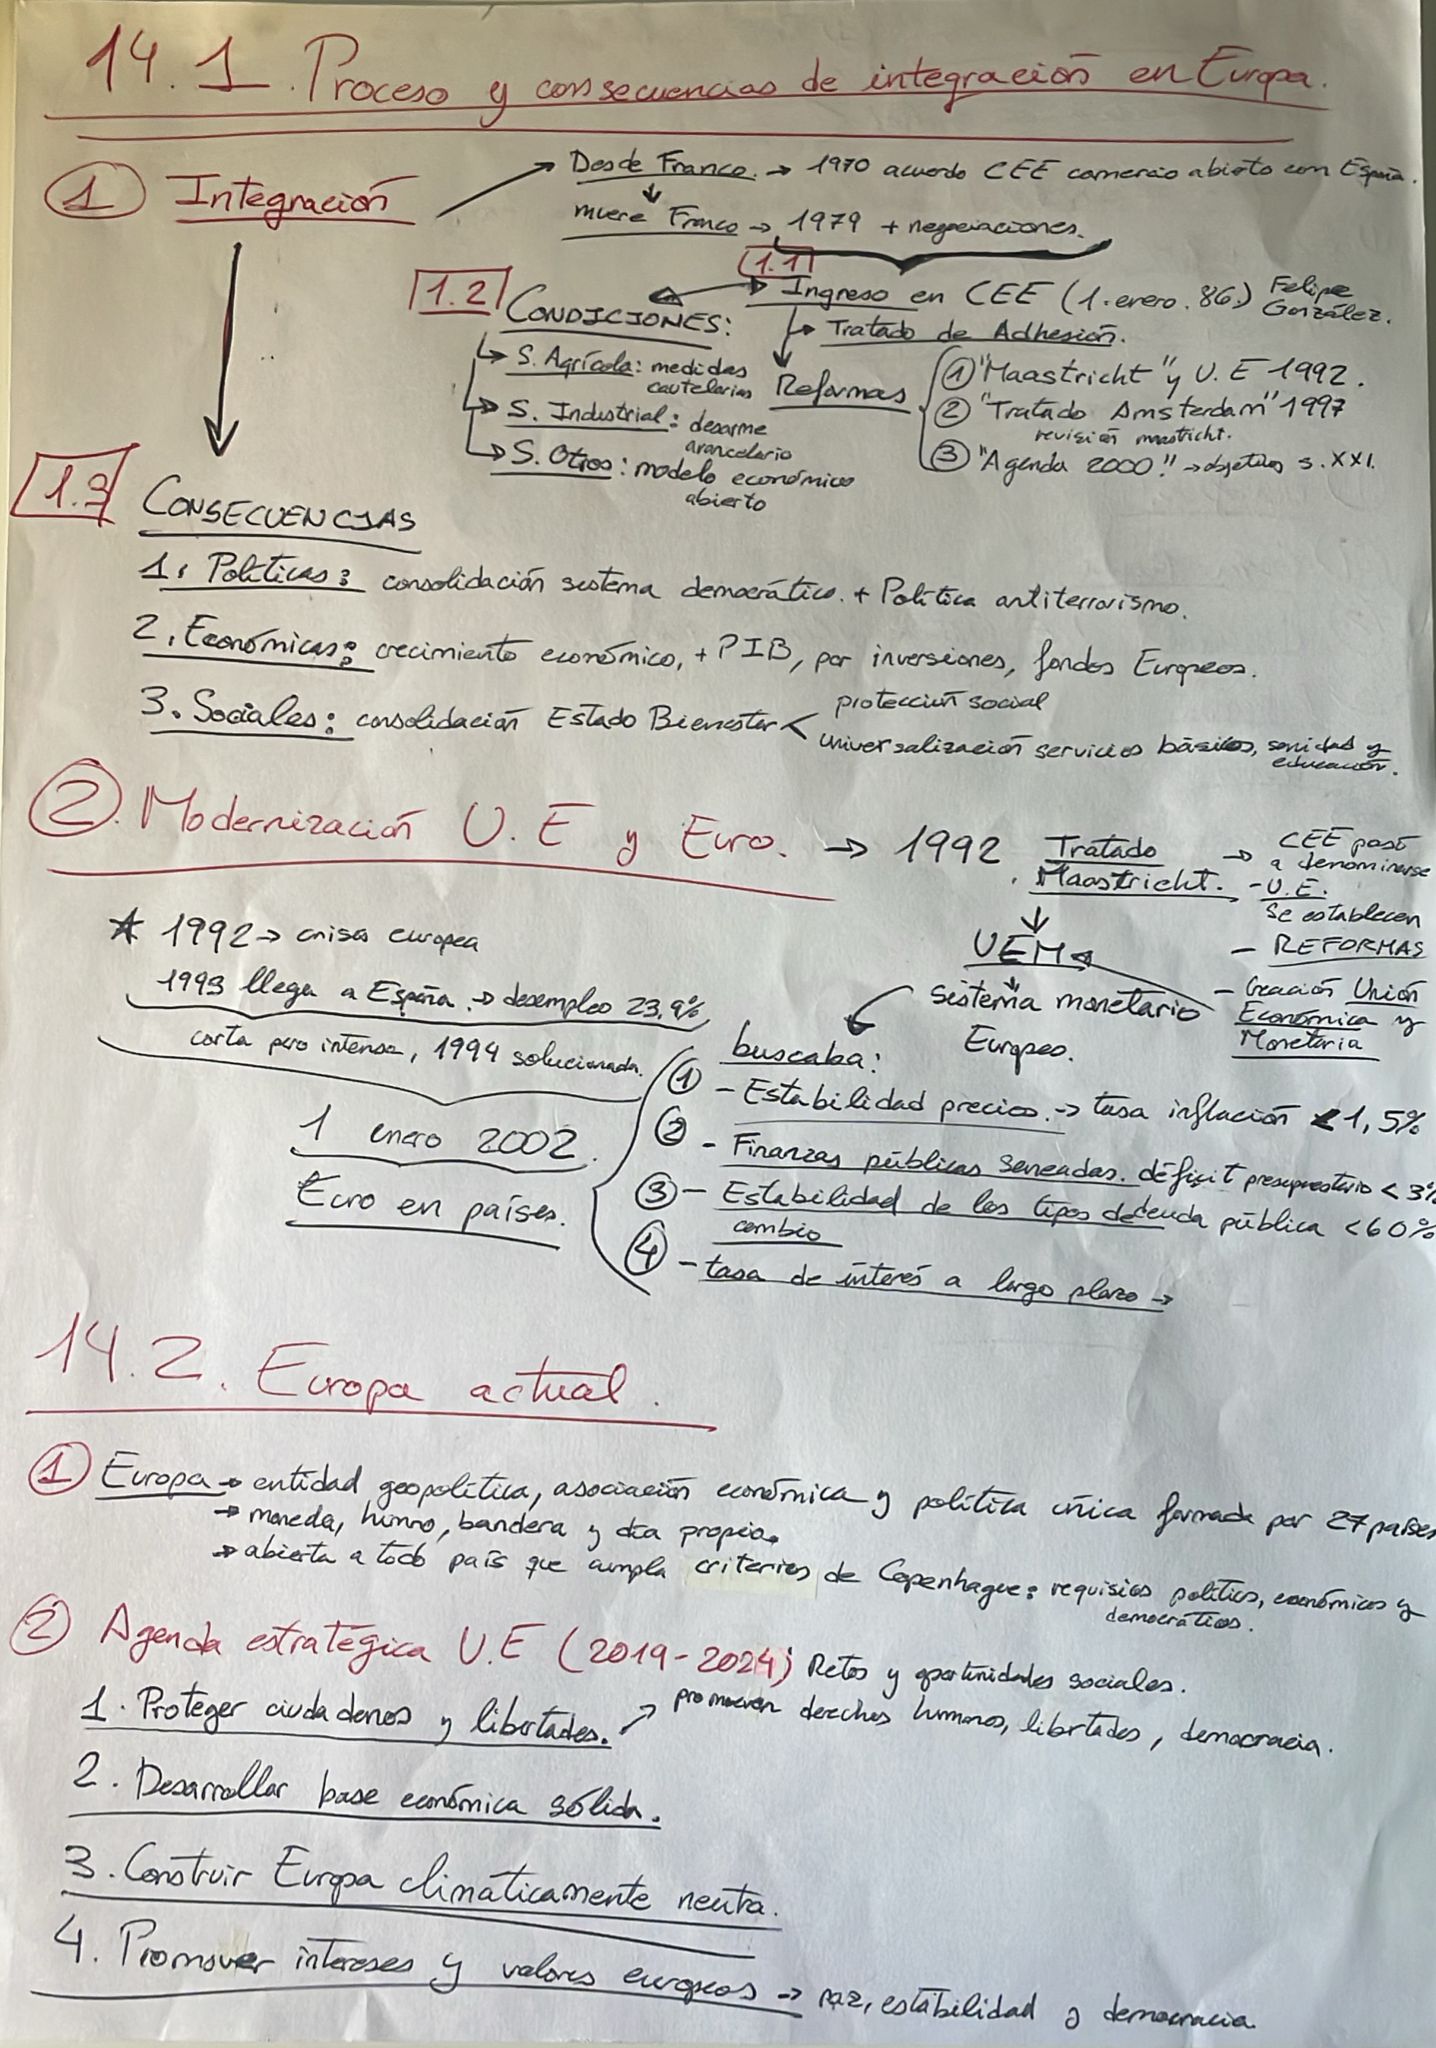 14.1. Proceso y consecuencias de integración en Europa.
1 Integración
Desde Franco. → 1970 acuerdo CEE comercio abierto con España.
muere Franco → 1979 + negociaciones.
1.1
Ingreso en CEE (1.enero.86.) Felipe González.
Tratado de Adhesión.
Reformas
① "Maastricht" y U.E 1992.
② "Tratado Amsterdam" 1997
revisión mastricht.
③ "Agenda 2000!" → objetivos s.XXI.
1.2 CONDICIONES:
S. Agrícola: medidas
cautelarias
S. Industrial: desarme
arancelario
S. Otros: modelo económico
abierto
1.3 CONSECUENCIAS
1. Políticas: consolidación sistema democrático. + Política antiterrorismo.
2. Económicas: crecimiento económico, + PIB, por inversiones, fondos Europeos.
3. Sociales: consolidación Estado Bienestar <
protección social
universalización servicios básicos, sanidad y
educación.
2. Modernización U.E y Euro. → 1992. Tratado
Maastricht.
→ CEE pasó
a denominarse
- U.E.
Se establecen
- REFORMAS
- Creación Unión
Económica y
Monetaria
UEM
sistema monetario
Europeo.
* 1992 → crisis europea
1993 llega a España → desempleo 23,9%
corta pero intensa, 1994 solucionada.
1 enero 2002.
Euro en países.
buscaba:
① - Estabilidad precios. → tasa inflación < 1,5%
② - Finanzas públicas saneadas. déficit presupuestario < 3%
③ - Estabilidad de los tipos de deuda pública < 60%
cambio
④ - tasa de interés a largo plazo →
14.2. Europa actual.
① Europa → entidad geopolítica, asociación económica y política única formada por 27 países
→ moneda, himno, bandera y día propio.
→ abierta a todo país que cumpla criterios de Copenhague: requisios políticos, económicos y
democráticos.
② Agenda estratégica U.E (2019-2024) Retos y oportunidades sociales.
1. Proteger ciudadanos y libertades. → promueven derechos humanos, libertades, democracia.
2. Desarrollar base económica sólida.
3. Construir Europa climáticamente neutra.
4. Promover intereses y valores europeos → paz, estabilidad y democracia.